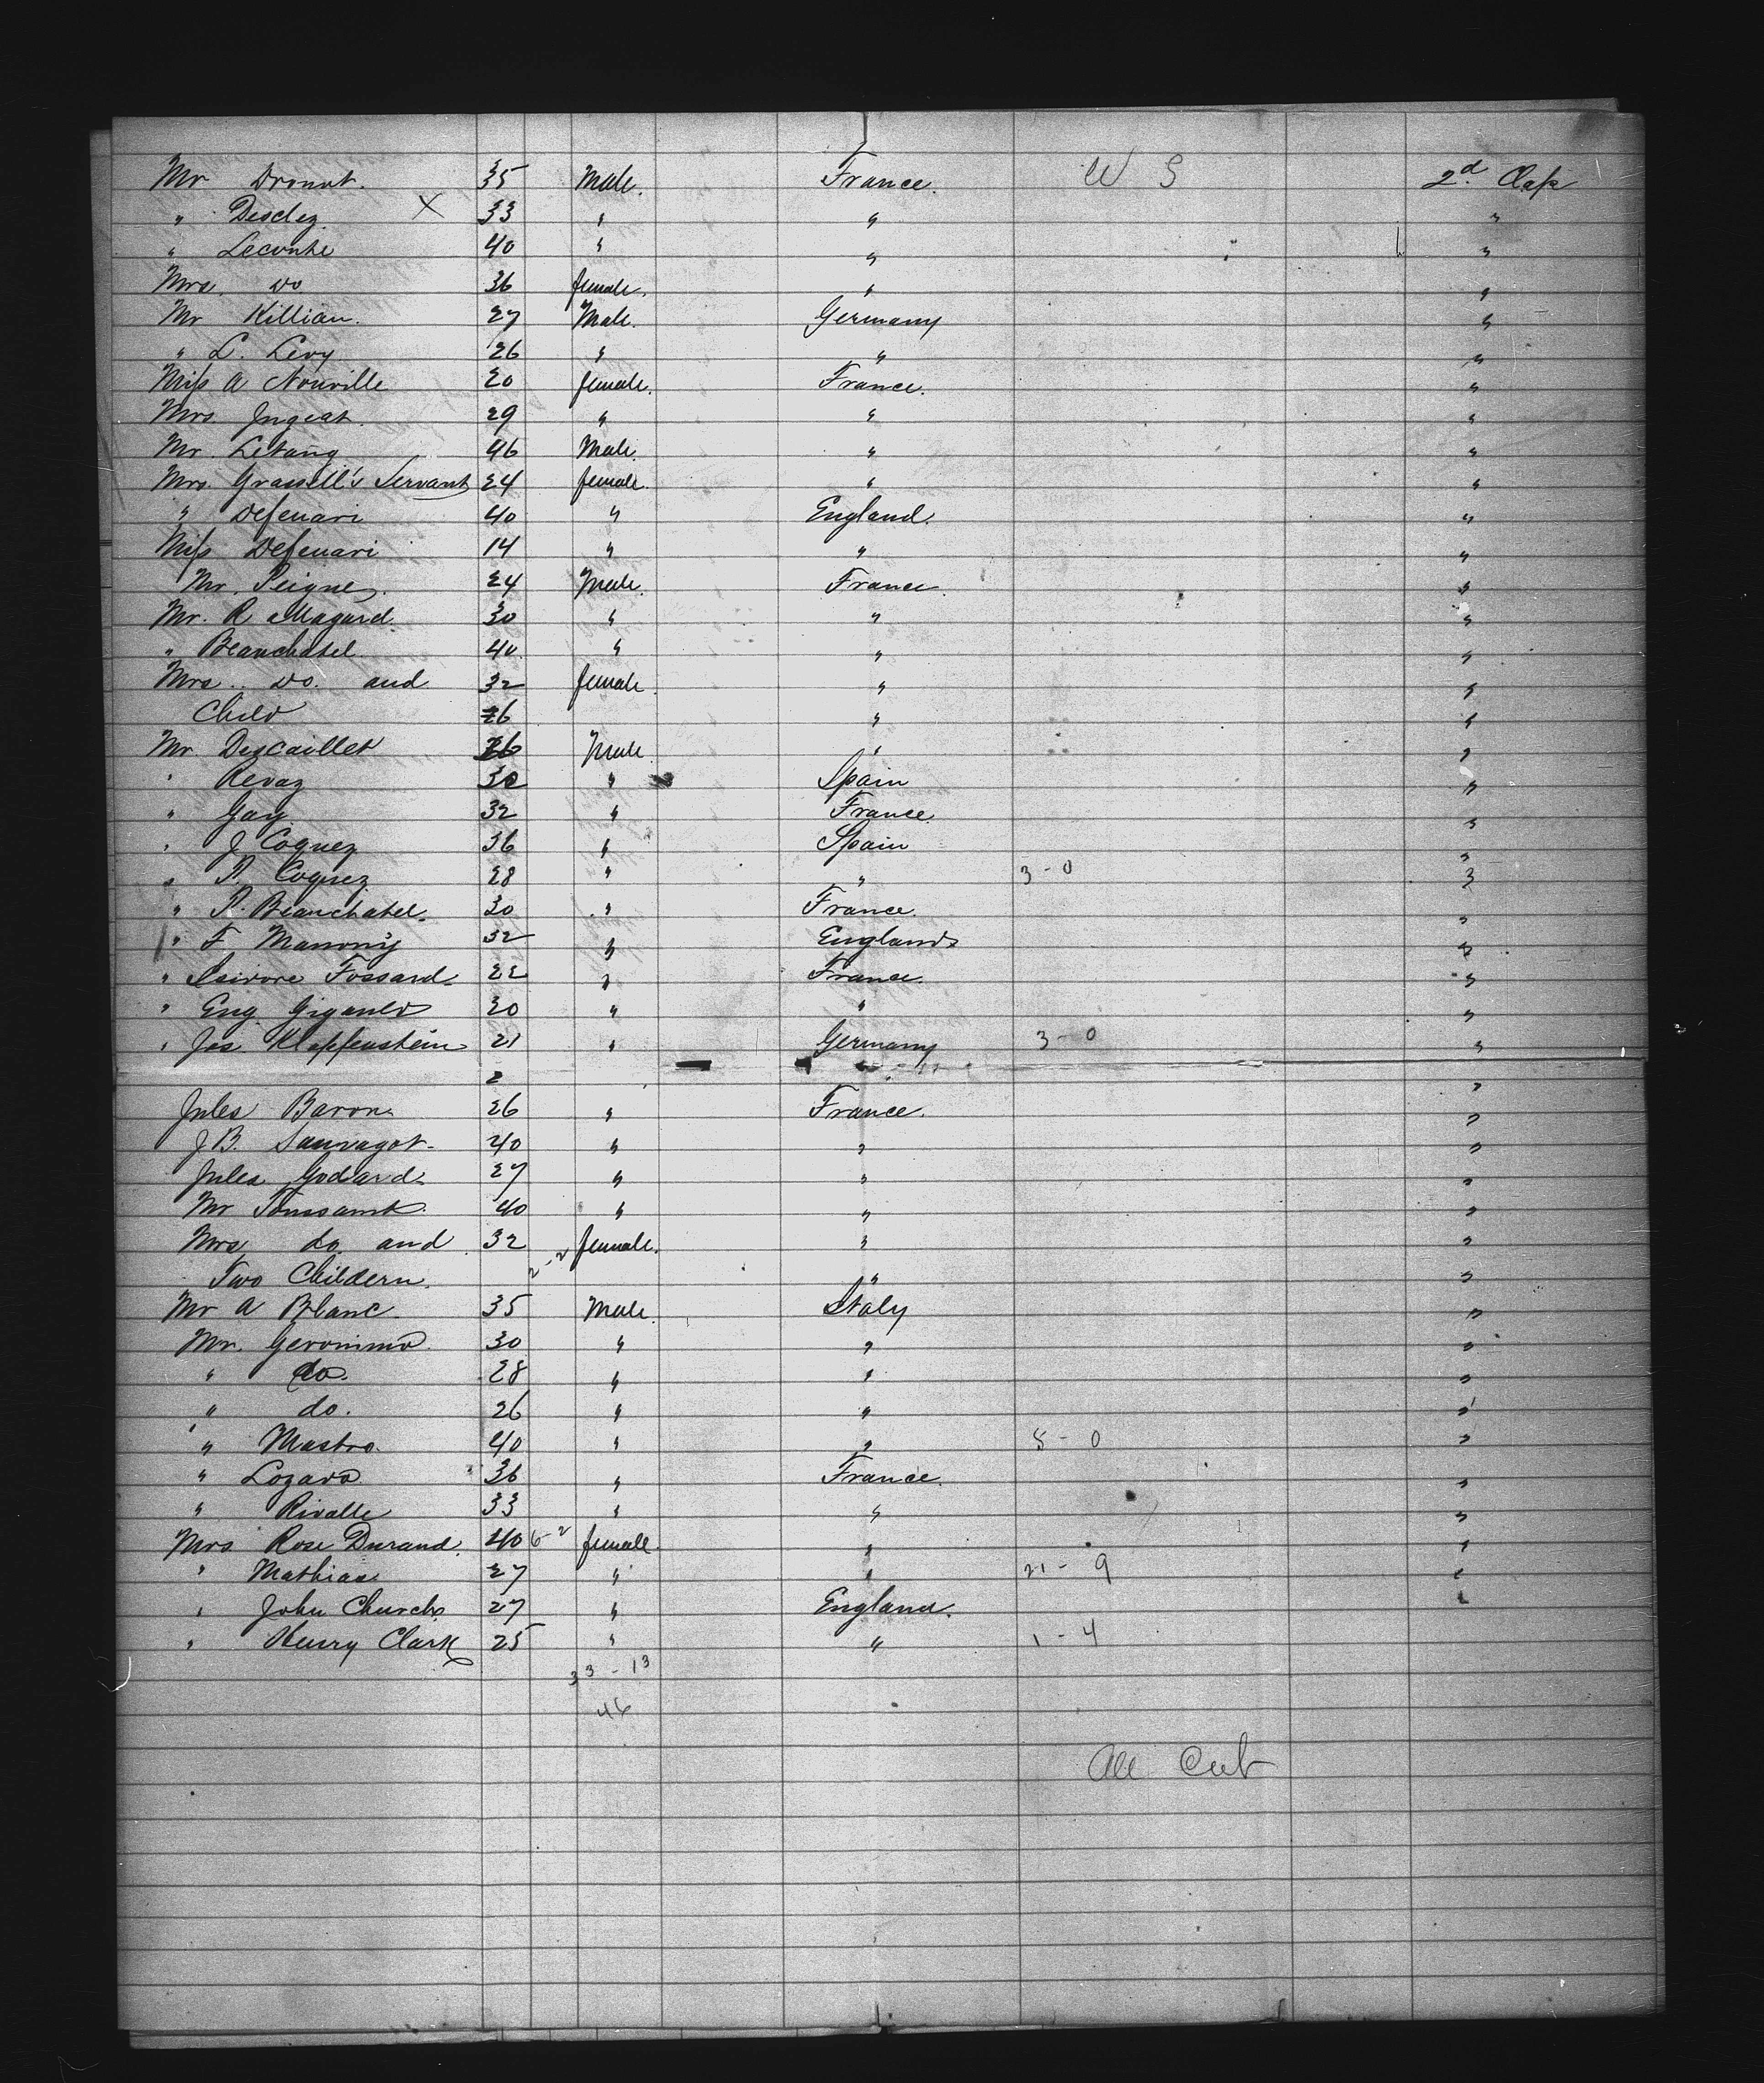 Mr Drouot. 35 Male. France. W S 2d. Class
" Desclez X 33 " " "
" Leconte 40 " " "
Mrs. do 36 female. " "
Mr Killian. 27 Male. Germany "
" L. Levy 26 " " "
Miss A Nouville 20 female. France. "
Mrs. Jngeat. 29 " " "
Mr. Letang 46 Male. " "
Mrs. Grassell's Servant 24 female. " "
" Defenari 40 " England. "
Miss Defenari 14 " " "
Mr. Peigne. 24 Male. France. "
Mr. R Magard. 30 " " "
" Beauchatel 40. " " "
Mrs. do. and 32 female. " "
Child 6 " "
Mr Descaillet 26 Male " "
" Revaz 30 " Spain "
" Gay 32 " France. "
" J Coquez 36 " Spain "
" P. Coquez 28 " " 3-0 "
" P. Beauchatel. 30 " France. "
" F. Manony 32 " England "
" Isivore Fossard. 22 " France. "
" Eug. Giganlt 20 " " "
" Jos. Klopfenstein 21 " Germany 3-0 "
2 "
Jules Baron 26 " France. "
J B. Sauvagot. 40 " " "
Jules Godard 27 " " "
Mr Toussaint. 40 " " "
Mrs do and 32 2-2 female. " "
Two Childern. " "
Mr A Blanc. 35 Male. Italy "
Mr. Geronimo. 30 " " "
" do. 28 " " "
" do. 26 " " "
" Mastro. 40 " " 5-0 "
" Lozaro. 36 " France. "
" Rivalle 33 " " "
Mrs. Rose Durand. 40 6-2 female. " "
" Mathias 27 " " 21-9 "
" John Church. 27 " England. "
" Henry Clark 25 " " 1-4
33-13
46
All Cub